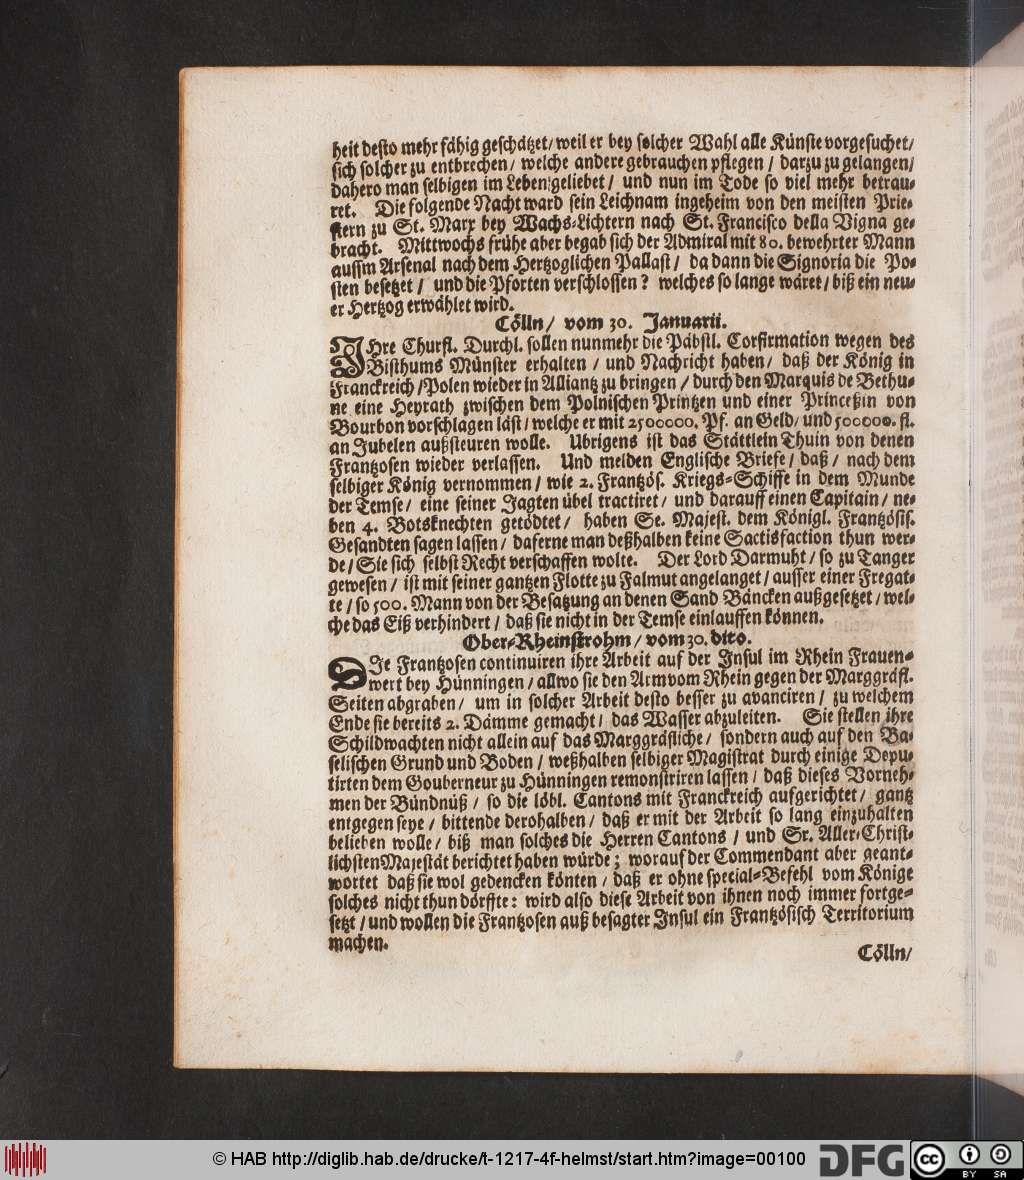 heit desto mehr fähig geschätzet/ weil er bey solcher Wahl alle Künste vorgesuchet/
sich solcher zu entbrechen/ welche andere gebrauchen pflegen / darzu zu gelangen/
dahero man selbigen im Leben geliebet / und nun im Tode so viel mehr betrau-
ret. Die folgende Nacht ward sein Leichnam ingeheim von den meisten Prie-
stern zu St. Marx bey Wachs-Lichtern nach St. Francisco della Vigna ge-
bracht. Mittwochs frühe aber begab sich der Admiral mit 80. bewehrter Mann
aussm Arsenal nach dem Hertzoglichen Pallast / da dann die Signoria die Po-
sten besetzet / und die Pforten verschlossen? welches so lange wäret / biß ein neu-
er Hertzog erwählet wird.
Cölln/ vom 30. Januarii.
IHre Churfl. Durchl. sollen nunmehr die Päbstl. Corfirmation wegen des
Bisthums Münster erhalten / und Nachricht haben/ daß der König in
Franckreich /Polen wieder in Alliantz zu bringen / durch den Marquis de Bethu-
ne eine Heyrath zwischen dem Polnischen Printzen und einer Princeßin von
Bourbon vorschlagen läst / welche er mit 2500000. Pf. an Geld/ und 500000. fl.
an Jubelen außsteuren wolle. Ubrigens ist das Stättlein Thuin von denen
Frantzosen wieder verlassen. Und melden Englische Briefe / daß / nach dem
selbiger König vernommen / wie 2. Frantzös. Kriegs-Schiffe in dem Munde
der Temse / eine seiner Jagten übel tractiret / und darauff einen Capitain / ne-
ben 4. Botsknechten getödtet / haben Se. Majest. dem Königl. Frantzösis.
Gesandten sagen lassen / daferne man deßhalben keine Sactisfaction thun wer-
de / Sie sich selbst Recht verschaffen wolte. Der Lord Darmuht / so zu Tanger
gewesen / ist mit seiner gantzen Flotte zu Falmut angelanget / ausser einer Fregat-
te / so 500. Mann von der Besatzung an denen Sand Bäncken außgesetzet / wel-
che das Eiß verhindert / daß sie nicht in der Temse einlauffen können.
Ober-Rheinstrohm / vom 30. dito.
DIe Frantzosen continuiren ihre Arbeit auf der Insul im Rhein Frauen-
wert bey Hünningen / allwo sie den Arm vom Rhein gegen der Marggräfl.
Seiten abgraben / um in solcher Arbeit desto besser zu avanciren / zu welchem
Ende sie bereits 2. Dämme gemacht / das Wasser abzuleiten. Sie stellen ihre
Schildwachten nicht allein auf das Marggräfliche / sondern auch auf den Ba-
selischen Grund und Boden / weßhalben selbiger Magistrat durch einige Depu-
tirten dem Gouberneur zu Hünningen remonstriren lassen / daß dieses Vorneh-
men der Bündnüß / so die löbl. Cantons mit Franckreich aufgerichtet / gantz
entgegen seye / bittende derohalben / daß er mit der Arbeit so lang einzuhalten
belieben wolle / biß man solches die Herren Cantons / und Sr. Aller-Christ-
lichsten Majestät berichtet haben würde; worauf der Commendant aber geant-
wortet daß sie wol gedencken könten / daß er ohne special-Befehl vom Könige
solches nicht thun dörffte: wird also diese Arbeit von ihnen noch immer fortge-
setzt / und wollen die Frantzosen auß besagter Insul ein Frantzösisch Territorium
machen.
Cölln/
© HAB http://diglib.hab.de/drucke/t-1217-4f-helmst/start.htm?image=00100
DFG
cc
BY SA